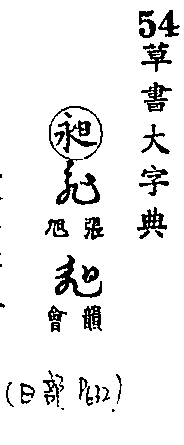 54
草書大字典
昶
張旭
韻會
(日部 P632)